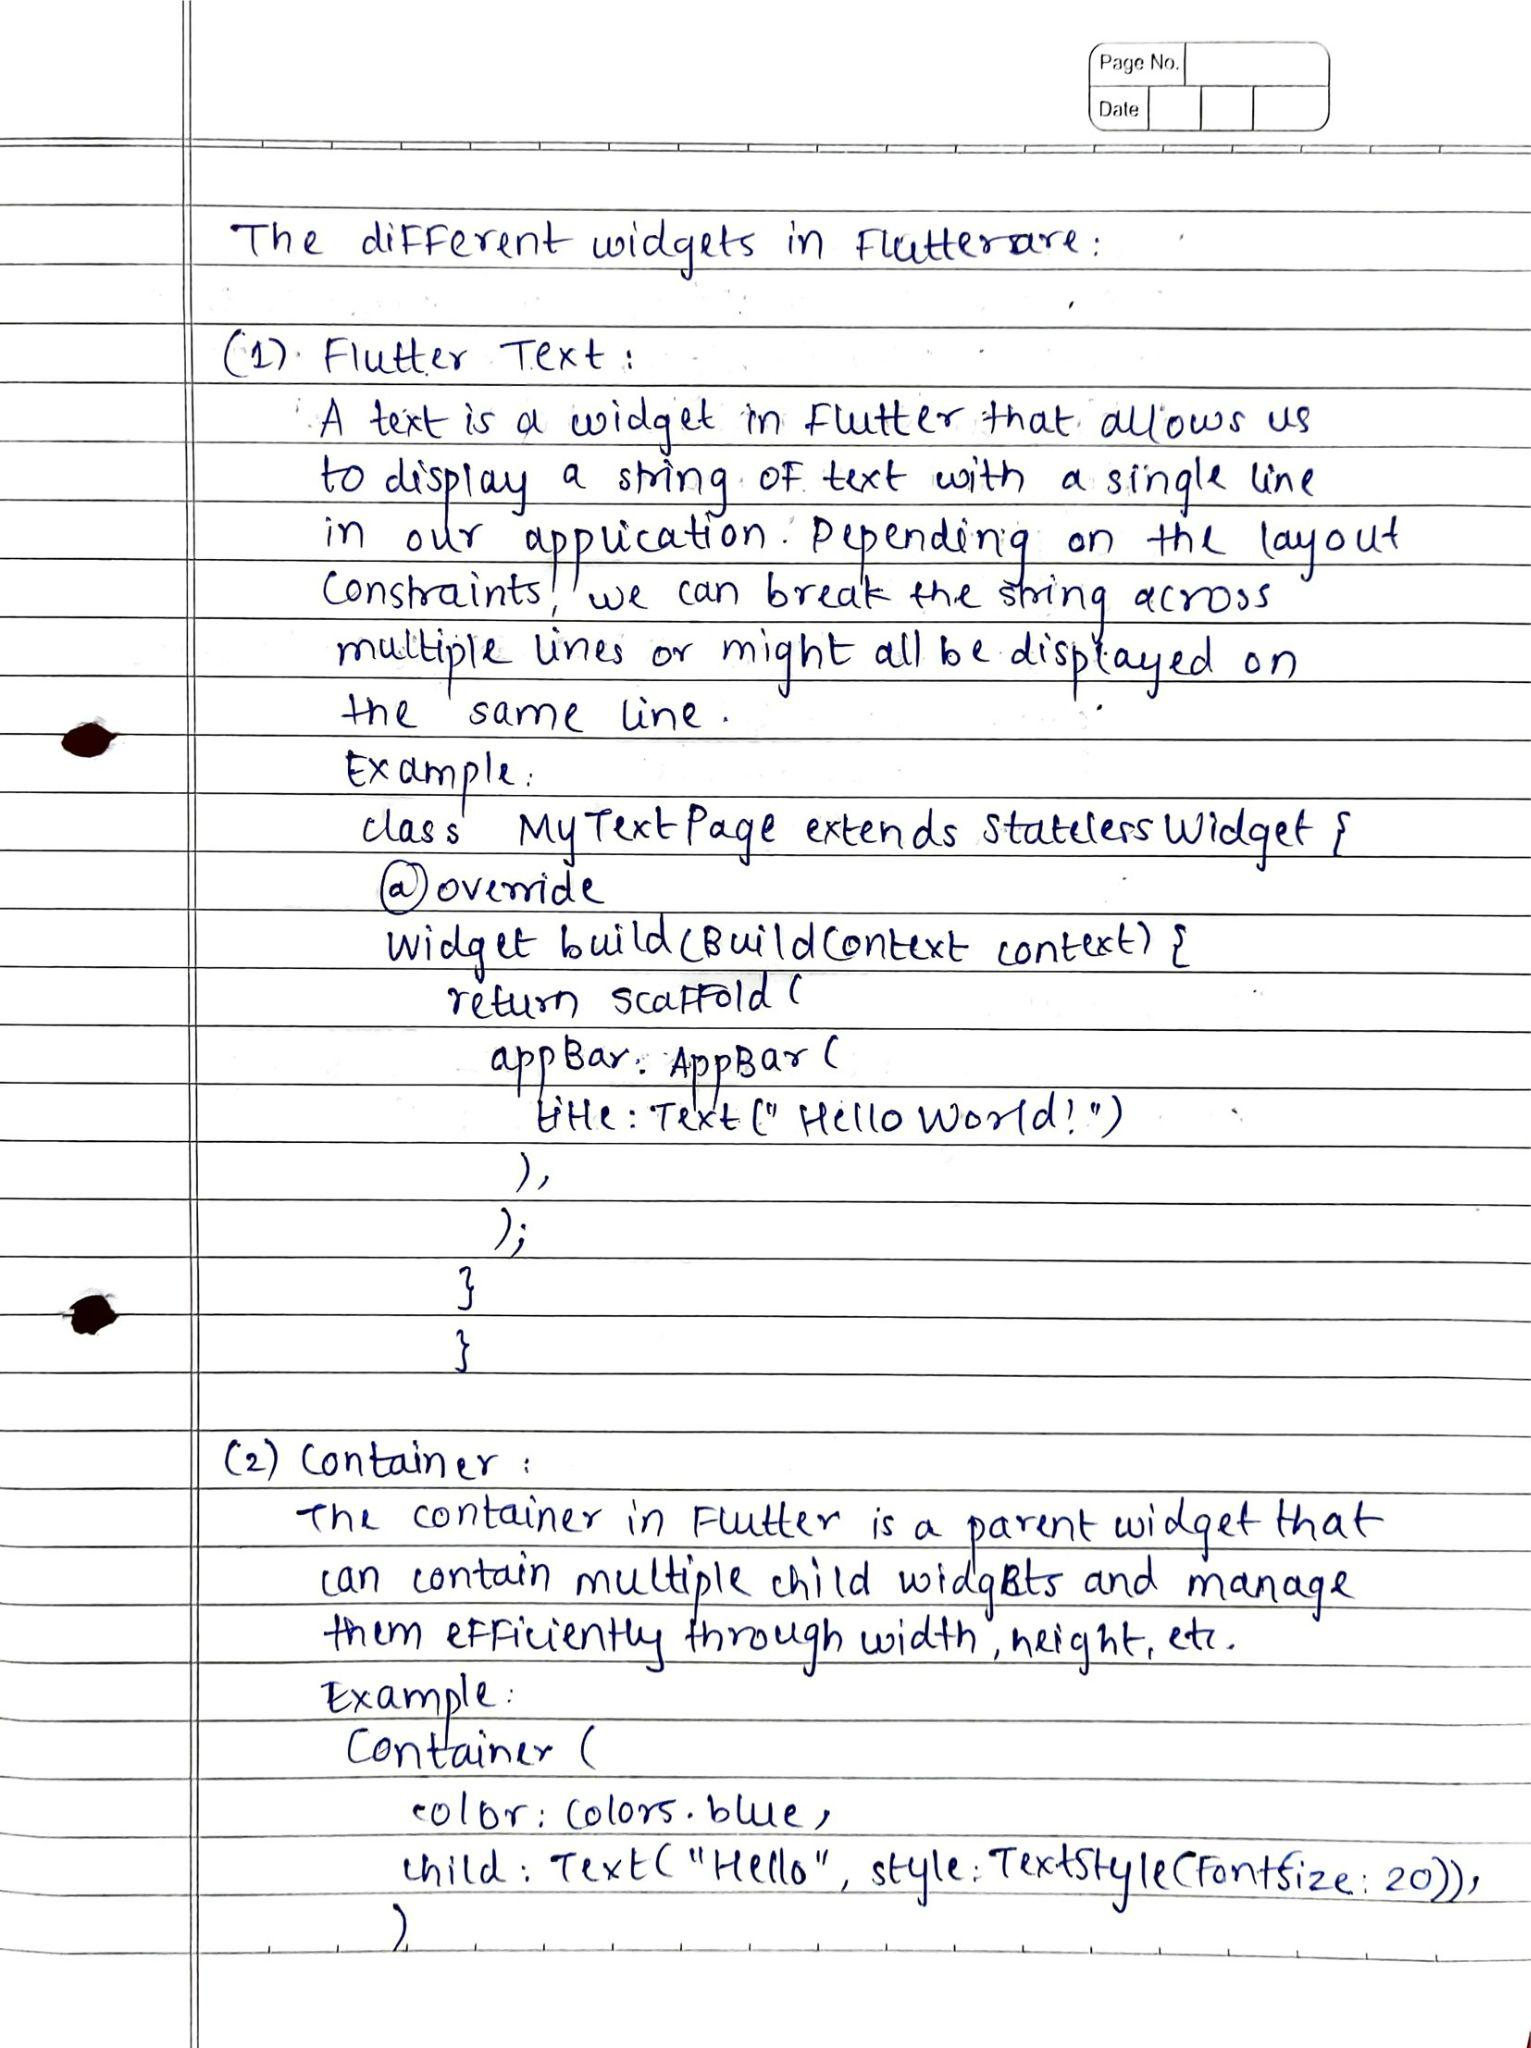 Page No.
Date
The different widgets in Flutter are:
(1). Flutter Text:
A text is a widget in Flutter that allows us
to display a string of text with a single line
in our application. Depending on the layout
constraints, we can break the string across
multiple lines or might all be displayed on
the same line.
Example:
class MyTextPage extends StatelessWidget {
@override
Widget build(BuildContext context) {
return scaffold (
appBar: AppBar (
title: Text (" Hello World!")
),
);
}
}
(2) Container :
The container in Flutter is a parent widget that
can contain multiple child widgets and manage
them efficiently through width, height, etc.
Example:
Container (
color: Colors.blue,
child: Text("Hello", style: TextStyle(FontSize: 20)),
)